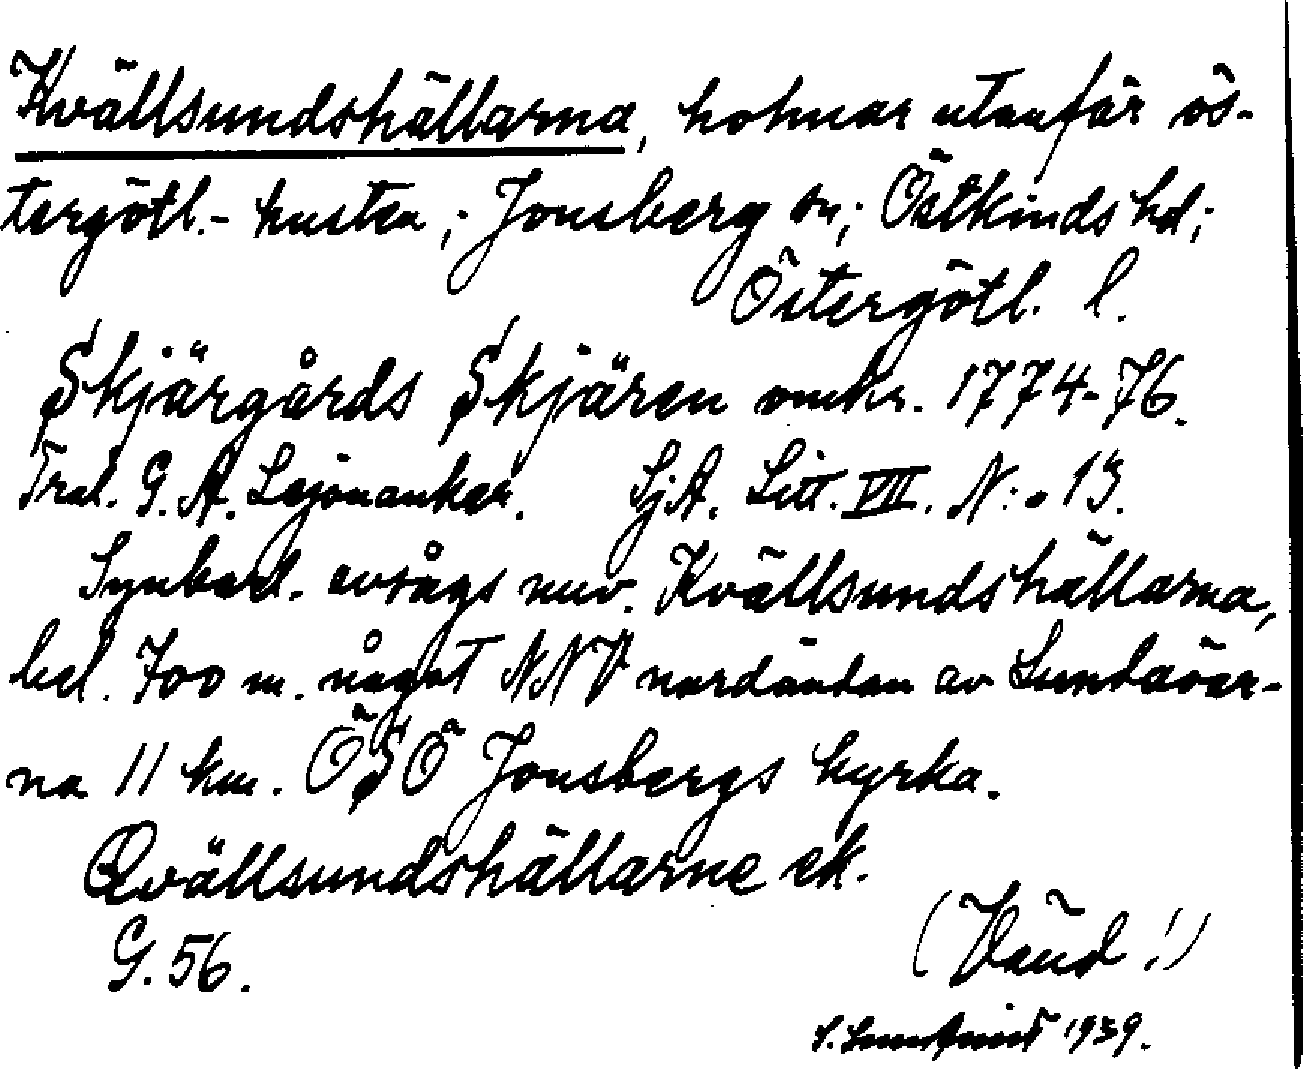 Kvällsundshällarna, holmar utanför ös-
tergötl.- kusten,; Jonsberg sn; Östkinds hd;
Östergötl. l.
Skjärgårds Skjären omkr. 1774-76.
Tral. G. A. Lejonanker. SjA. Litt. VIII. N:o 13.
Synbarl. avsågs nuv. Kvällsundshällarna,
bel. 700 m. något NNV nordändan av Lundaöar-
na 11 km. ÖSÖ Jonsbergs kyrka.
Qvällsundshällarne ek.
G. 56.
(Vänd!)
1939.